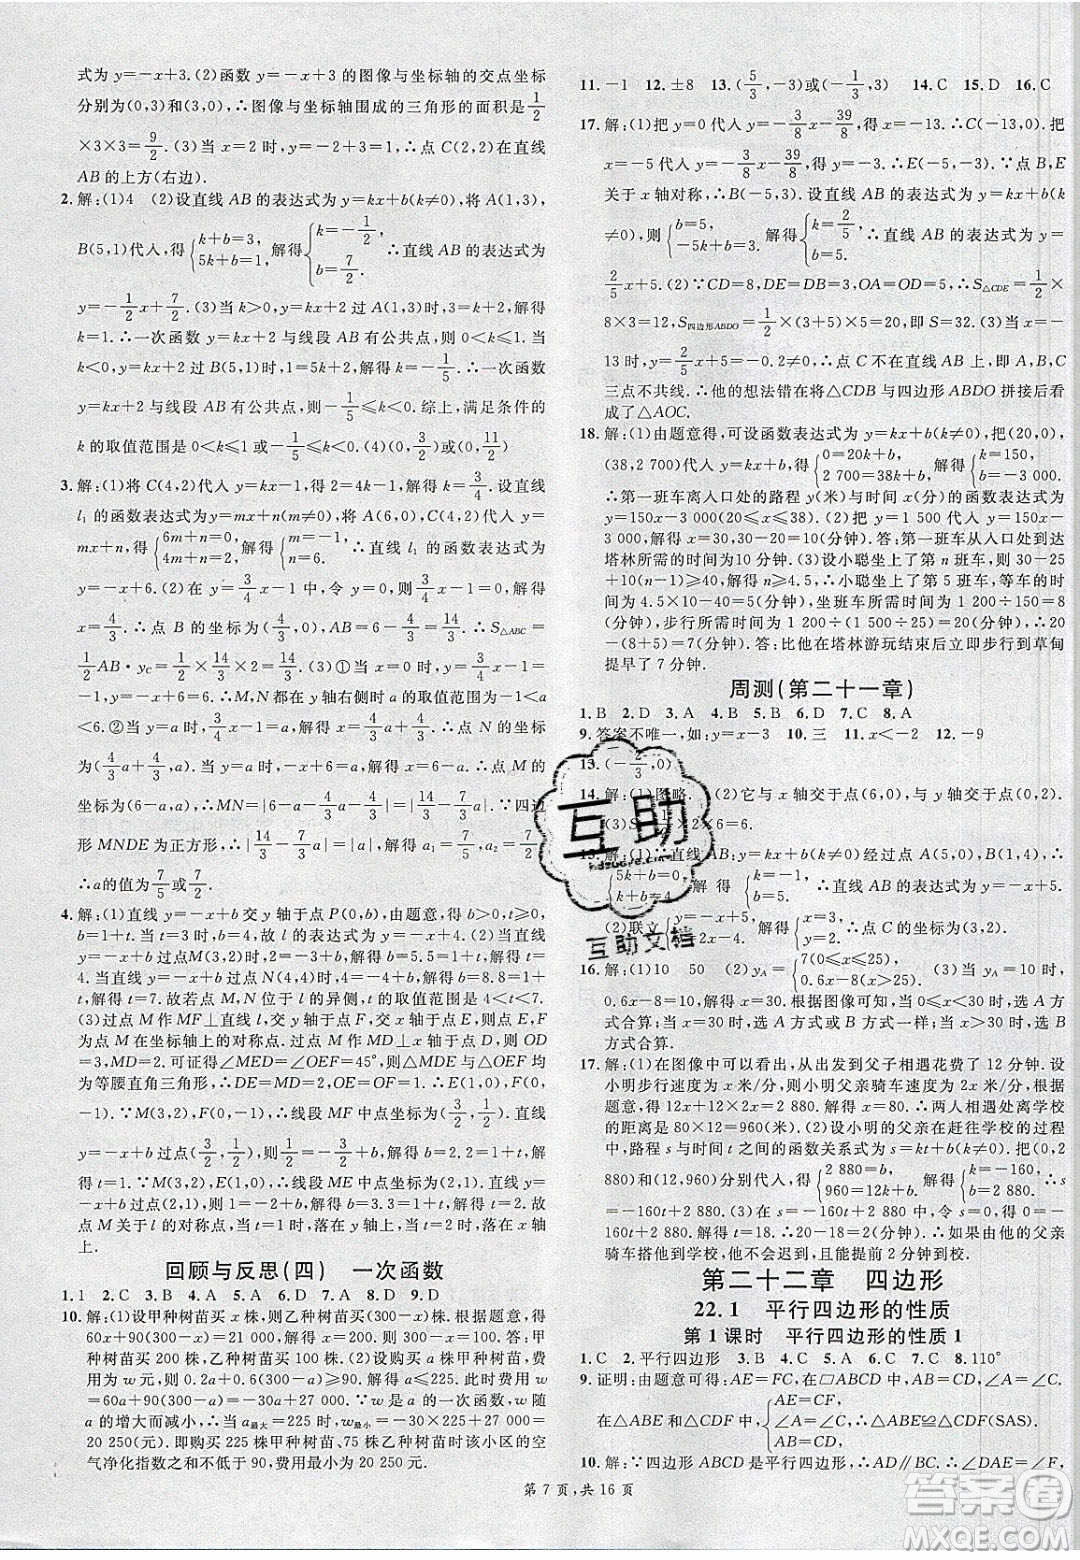 式为 y=-x+3.(2)函数 y=-x+3 的图像与坐标轴的交点坐标
分别为(0,3)和(3,0),∴图像与坐标轴围成的三角形的面积是 1/2
×3×3=9/2.(3)当 x=2 时,y=-2+3=1,∴点 C(2,2)在直线
AB 的上方(右边).
2. 解:(1)4 (2)设直线 AB 的表达式为 y=kx+b(k≠0),将 A(1,3),
B(5,1)代入,得{k+b=3, 5k+b=1. 解得{k=-1/2, b=7/2. ∴直线 AB 的表达式为
y=-1/2x+7/2.(3)当 k>0,y=kx+2 过 A(1,3)时,3=k+2,解得
k=1.∴一次函数 y=kx+2 与线段 AB 有公共点,则 0<k≤1.当
k<0,y=kx+2 过 B(5,1)时,1=5k+2,解得 k=-1/5.∴一次函
数 y=kx+2 与线段 AB 有公共点,则-1/5≤k<0.综上,满足条件的
k 的取值范围是 0<k≤1 或-1/5≤k<0.(4)(2,0)或(1/2,0)
3. 解:(1)将 C(4,2)代入 y=kx,得 2=4k-1,解得 k=3/4.设直线
l₁ 的函数表达式为 y=mx+n(m≠0),将 A(6,0),C(4,2)代入 y=
mx+n,得{6m+n=0, 4m+n=2. 解得{m=-1, n=6. ∴直线 l₁ 的函数表达式为
y=-x+6.(2)当 y=3/4x-1=0 时,x=4/3,
x=4/3,∴点 B 的坐标为(4/3,0),∴AB=6-4/3=14/3.∴S△ABC=
1/2AB·yC=1/2×14/3×2=14/3.(3)①当 x=0 时,y=-x+6=6;当 y=0
时,-x+6=0,x=6.∴M,N 都在 y 轴右侧时 a 的取值范围是-1<a
<6.②当 y=-x+6=a 时,x=6-a,
(4/3+4/3a,a).当 x=4/3+4/3a 时,y=-x+6=14/3-4/3a,∴点 M 的坐
标为(6-a,a),∴MN=|6-a-(4/3+4/3a)|=|14/3-7/3a|.∵四边
形 MNDE 为正方形,∴|14/3-7/3a|=|a|,解得 a₁=7/5,a₂=7/2.
∴a的值为7/5或7/2.
4. 解:(1)直线 y=-x+b 交 y 轴于点 P(0,b),由题意,得 b>0,t≥0,
b=1+t.当 t=3 时,b=4,∴直线 l 的表达式为 y=-x+4.(2)当直线
y=-x+b 过点 M(3,2)时,2=-3+b,解得 b=5.5=1+t,解得 t=
4.当直线 y=-x+b 过点 N(4,4)时,4=-4+b,解得 b=8.8=1+t,
解得 t=7.故若点 M,N 位于 l 的异侧,t 的取值范围是 4<t<7.
(3)过点 M 作 MF⊥直线 l,交 y 轴于点 F,交 x 轴于点 E,过点 M
作 MD⊥x 轴于点 D,则点 E,F 为点 M 在坐标轴上的对称点.
22.∴OD=3,MD=2.由题意,得∠MED=∠OEF=45°,∴△MDE 与△OEF 均
为等腰直角三角形,∴DE=MD=2,OE=OF=1,∴E(1,0),
F(0,-1).∵M(3,2),F(0,-1),∴线段 MF 中点坐标为(3/2,1/2).直线
y=-x+b 过点(3/2,1/2),则 1/2=-3/2+b,解得 b=2.2=1+t,解
得 t=1.∵M(3,2),E(1,0),∴线段 ME 中点坐标为(2,1).直线
y=-x+b 过点(2,1),则 1=-2+b,解得 b=3.3=1+t,解得 t=2.故
点 M 关于 l 的对称点,当 t=1 时,落在 y 轴上,当 t=2 时,落在 x 轴
上.
回顾与反思(四) 一次函数
1. 1 2. C 3. C 4. D 5. A 6. C 7. B 8. D 9. D
10. 解:(1)设甲种树苗买 x 株,则乙种树苗买(300-x)株.根据题意,得
60x+90(300-x)=21 000,解得 x=200,300-200=100.答:甲
种树苗买 200 株,乙种树苗买 100 株.(2)设购买 a 株甲种树苗,
则 0.2a+0.6(300-a)≥90,解得 a≤225.设费用为 w 元,则
w=60a+90(300-a)=-30a+27 000.∵w 是 a 的一次函数,w 随
a 的增大而减小,∴a最大=225 时,w最小=-30×225+27 000=
20 250(元).即购买 225 株甲种树苗、75 株乙种树苗时该小区的空
气净化指数之和不低于 90,费用最小为 20 250 元.
11. -1 12. ±8 13. (5/3,-3)或(-1/3,3) 14. C 15. D 16. C
17. 解:(1)把 y=0 代入 y=-3/8x-39/8,得 x=-13.∴C(-13,0).把
x=-5 代入 y=-3/8x-39/8,得 y=-3.∴E(-5,-3).∵点 B,E
关于 x 轴对称,∴B(-5,3).设直线 AB 的表达式为 y=kx+b(k
≠0),则{b=5, -5k+b=3. 解得{k=2/5, b=5. ∴直线 AB 的表达式为 y=
2/5x+5.(2)∵CD=8,DE=DB=3,OA=OD=5,∴S△CDE=1/2×
8×3=12,S四边形ABDO=1/2×(3+5)×5=20,即 S=32.(3)当 x=-
13时,y=2/5x+5=-0.2≠0,∴点 C 不在直线 AB 上,即 A,B,C
三点不共线.∴他的想法错在将△CDB 与四边形 ABDO 拼接后看
成了△AOC.
18. 解:(1)由题意得,可设函数表达式为 y=kx+b(k≠0),把(20,0),
(38,2 700)代入,得{0=20k+b, 2 700=38k+b. 解得{k=150, b=-3 000.
∴第一班车离入口处的路程 y(米)与时间 x(分)的函数表达式为
y=150x-3 000(20≤x≤38).(2)把 y=1 500 代入 y=150x-
3 000,解得 x=30.30-20=10(分钟).答:第一班车从入口处到达
塔林所需的时间为10分钟.(3)设小聪坐上了第 n 班车,则 30-25
+10(n-1)≥40,解得 n≥4.5,∴小聪坐上了第 5 班车,等车的时
间为 5 分钟,坐班车所需时间为 1 200÷150=8
(分钟),步行所需时间为 1 200÷(1 500÷25)=20(分钟),20
-(8+5)=7(分钟).答:比他在塔林游玩结束后立即步行到草甸
提早了 7 分钟.
周测(第二十一章)
1. B 2. D 3. A 4. B 5. B 6. D 7. C 8. A
9. 答案不唯一,如:y=x-3 10. 三 11. x<-2 12. -9
13. (-2/3,0)
14. 解:(1)图略. (2)它与 x 轴交于点(6,0),与 y 轴交于点(0,2).
(3)S=1/2×2×6=6.
15. 解:(1)∵直线 AB:y=kx+b(k≠0)经过点 A(5,0),B(1,4),∴
{5k+b=0, k+b=4. 解得{k=-1, b=5. ∴直线 AB 的表达式为 y=-x+5.
(2)联立{y=-x+5, y=2x-4. 解得{x=3, y=2. ∴点 C(3,2).
16. 解:(1)10 50 (2)yA={7(0≤x≤25), 0.6x-8(x>25). (3)当 yA=yB 时,
0.6x-8=10,解得 x=30.根据图像可知,当 0≤x<30 时,选 A 方
式合算;当 x=30 时,选 A 方式或 B 方式一样;当 x>30 时,选 B
方式合算.
17. 解:(1)在图像中可以看出,从出发到父子相遇花费了 12 分钟.设
设小明步行速度为 x 米/分,则小明父亲骑车速度为 2x 米/分,根据
题意,得 12x+2x·12=2 880.解得 x=80.∴两人相遇处离学校
的距离是 80×12=960(米).(2)设小明的父亲在赶往学校的过程
中,路程 s 与时间 t 之间的函数关系式为 s=kt+b(k≠0).把(0,2
880)和(12,960)代入,得{2 880=b, 960=12k+b. 解得{k=-160, b=2 880. ∴s
=-160t+2 880.(3)在 s=-160t+2 880中,令 s=0,得-
160t+2 880=0.解得 t=18.∴20-18=2(分钟).∴小明的父亲
骑车搭他到学校,能在开演前 2 分钟到校.
第二十二章 四边形
22.1 平行四边形的性质
第 1 课时 平行四边形的性质 1
1. C 2. 平行四边形 3. B 4. C 5. A 6. C 7. C 8. 110°
9. 证明:由题意可得:AE=FC,在▱ABCD 中,AB=CD,∠A=∠C.
在△ABE 和△CDF 中,{AE=CF, ∠A=∠C, AB=CD. ∴△ABE≌△CDF(SAS).
10. 解:∵四边形 ABCD 是平行四边形,∴AD∥BC,∴∠DAE=∠F,
第 7 页,共 16 页
互助
hdzuoye.com
互助文档
答案圈
MXQE.COM